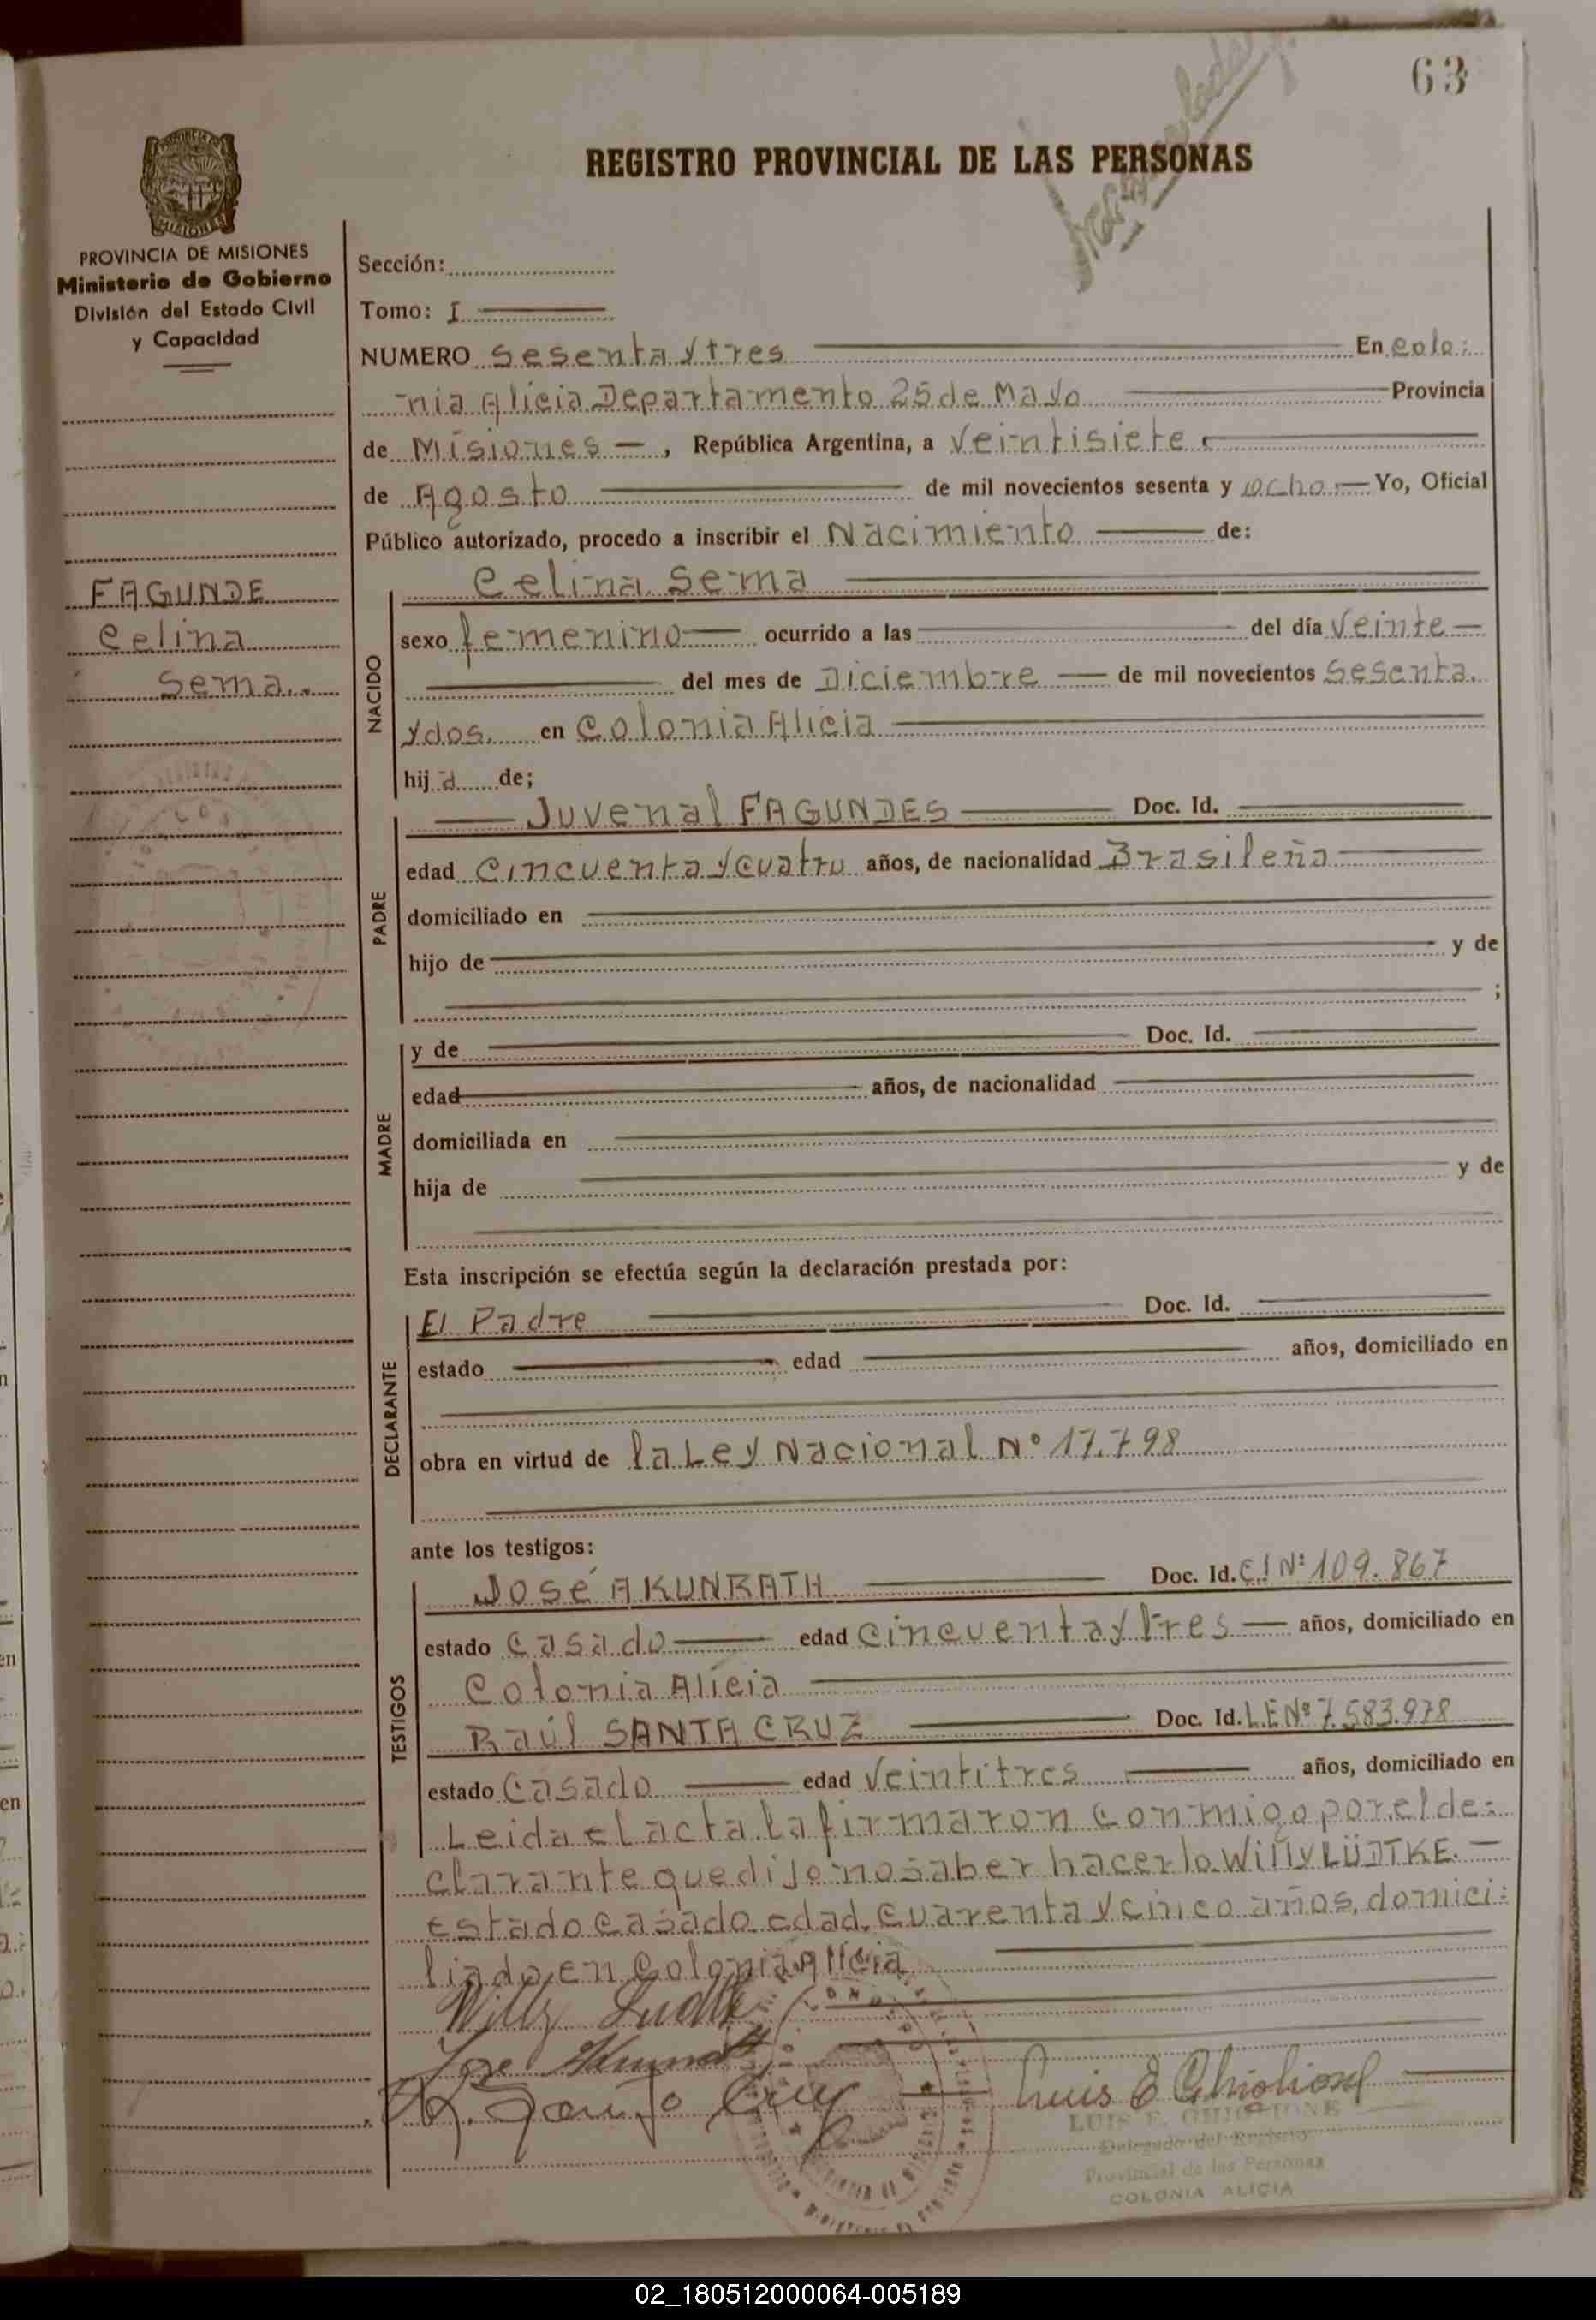 63
REGISTRO PROVINCIAL DE LAS PERSONAS
PROVINCIA DE MISIONES
Ministerio de Gobierno
División del Estado Civil
y Capacidad
FAGUNDE
Celina
Sema..
Sección:
Tomo: I
NUMERO Sesenta y tres En Colo:
nia Alicia Departamento 25 de Mayo Provincia
de Misiones — , República Argentina, a Veintisiete
de Agosto de mil novecientos sesenta y ocho — Yo, Oficial
Público autorizado, procedo a inscribir el Nacimiento de:
NACIDO
Celina Sema
sexo femenino ocurrido a las del día Veinte —
del mes de Diciembre — de mil novecientos Sesenta
y dos. en Colonia Alicia
hija de;
PADRE
Juvenal FAGUNDES Doc. Id.
edad Cincuenta y Cuatro años, de nacionalidad Brasileña
domiciliado en
hijo de y de
;
MADRE
y de Doc. Id.
edad años, de nacionalidad
domiciliada en
hija de y de
Esta inscripción se efectúa según la declaración prestada por:
DECLARANTE
El Padre Doc. Id.
estado edad años, domiciliado en
obra en virtud de la Ley Nacional Nº 17.798
ante los testigos:
TESTIGOS
José A KUNRATH Doc. Id. C.I Nº 109.867
estado Casado edad Cincuenta y tres — años, domiciliado en
Colonia Alicia
Raúl SANTA CRUZ Doc. Id. L.E Nº 7.583.978
estado Casado edad Veintitres años, domiciliado en
Leida el acta la firmaron conmigo por el de:
clarante que dijo no saber hacerlo. Willy LÜDTKE. —
estado Casado edad. Cuarenta y cinco años, domici:
liado en Colonia Alicia
Willy Ludtke
Jose Kunrath
R. Santa Cruz
Luis E Ghiglione
LUIS E. GHIGLIONE
Delegado del Registro
Provincial de las Personas
COLONIA ALICIA
02_180512000064-005189